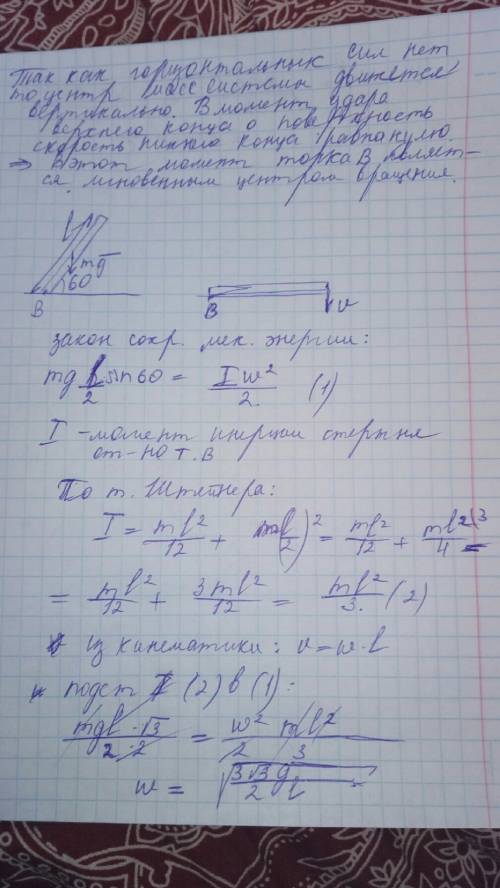 Так как горизонтальных сил нет
то центр масс системы движется
вертикально. В момент удара
верхнего конца о поверхность
скорость нижнего конца равна нулю.
⇒ В этот момент точка В являет-
ся мгновенным центром вращения.
mg
60
В
В v
закон сохр. мех. энергии:
mg l/2 sin60 = Iw²/2 (1)
I - момент инерции стержня
от-но т. В
По т. Штейнера:
I = ml²/12 + m(l/2)² = ml²/12 + ml²/4 =
= ml²/12 + 3ml²/12 = ml²/3 (2)
из кинематики: v = w·l
подст (2) в (1):
mgl·√3/2·2 = w² ml²/2 3
w = √(3√3 g/2 l)